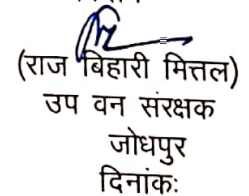 (राज बिहारी मित्तल)
उप वन संरक्षक
जोधपुर
दिनांकः